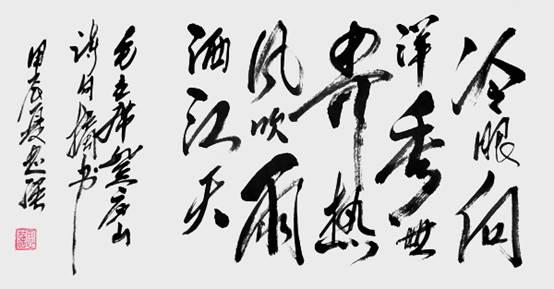 冷眼向
洋看世
界热
风吹雨
洒江天
毛主席登庐山
诗句摘书
甲辰夏